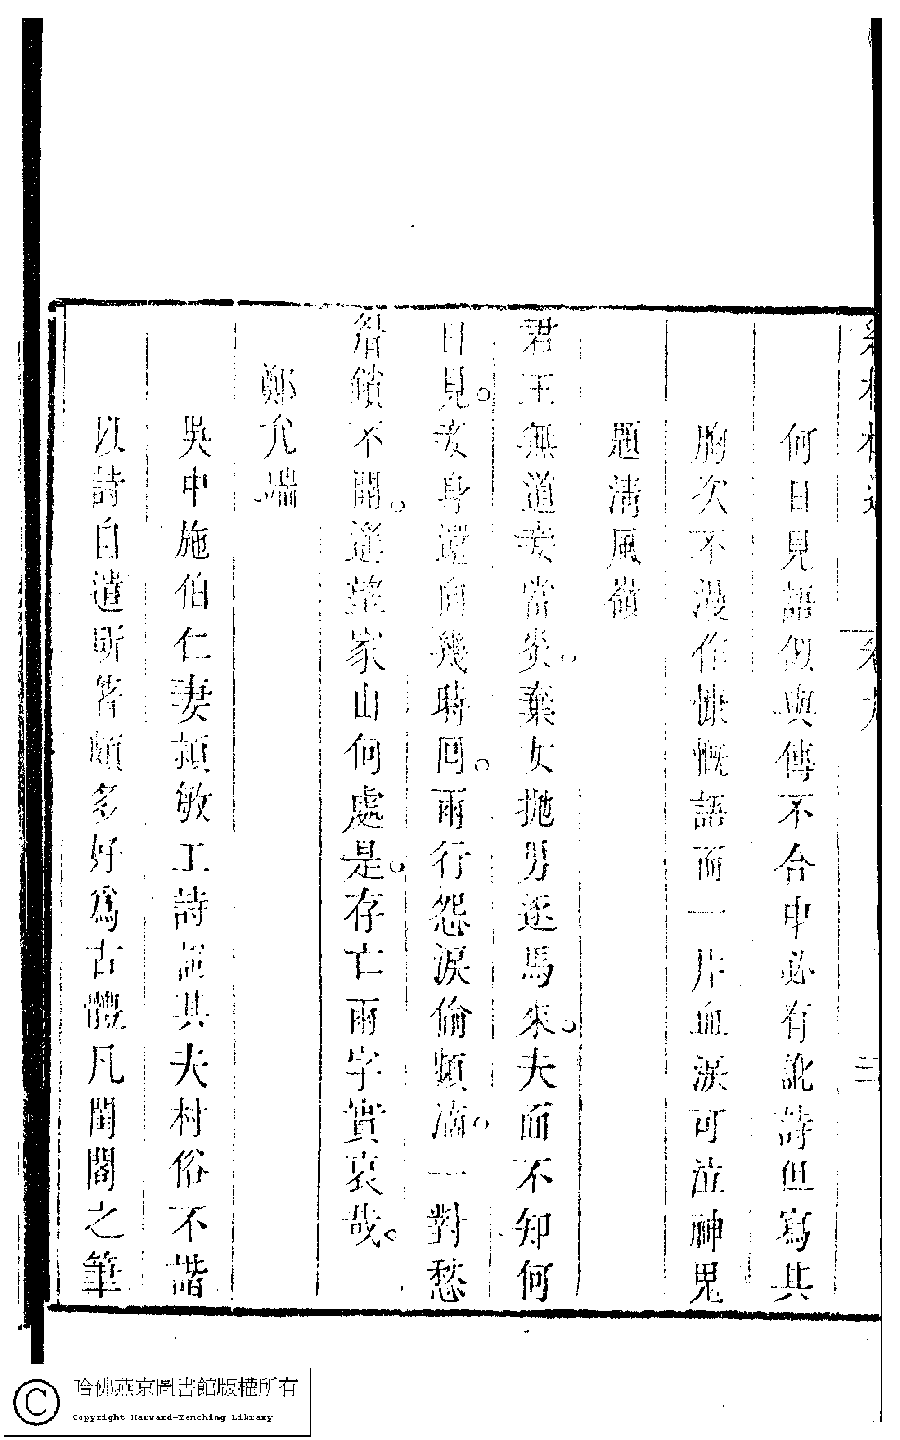 何日見語似與傳不合中必有訛詩但寫其
胸次不漫作慷慨語而一片血淚可泣神鬼
題清風嶺
君王無道妾當災棄女拋男逐馬來夫面不知何
日見妾身還自幾時囘兩行怨淚偷頻滴一對愁
眉鎖不開遙望家山何處是存亡兩字實哀哉
鄭允端
吳中施伯仁妻頴敏工詩詞其夫村俗不諧
以詩自遣所著頗多好爲古體凡閨閤之筆
哈佛燕京圖書館版權所有
Copyright Harvard-Yenching Library